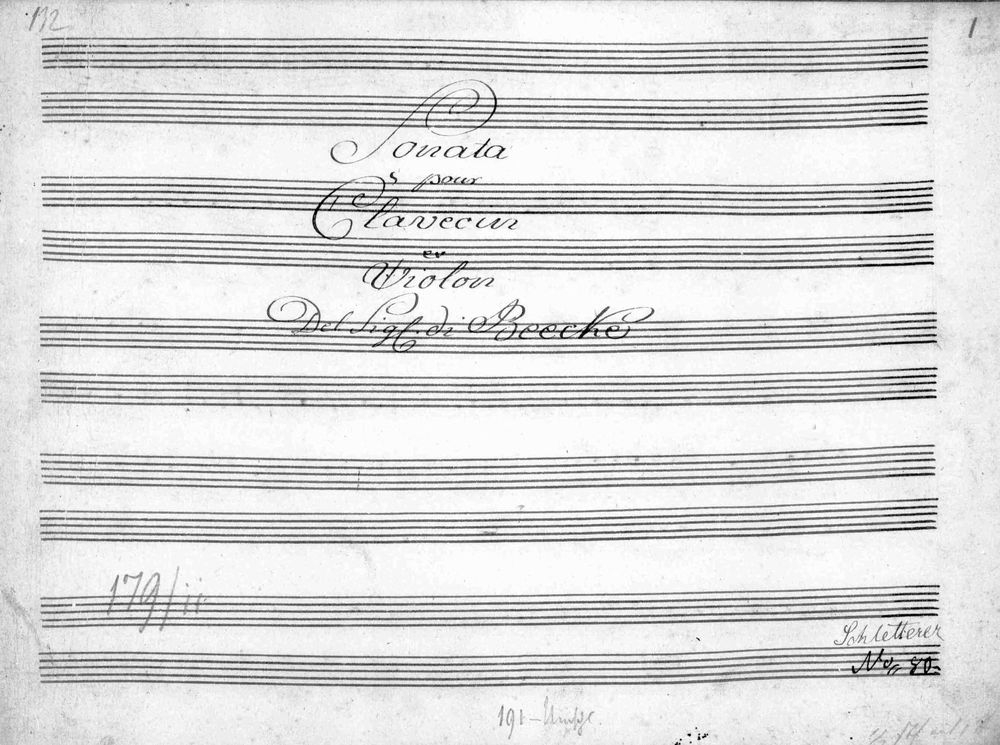 132
1
Sonata
pour
Clavecin
et
Violon
Del Sigl. di Beecke
179/ii
Schletterer
No. 80.
191 -